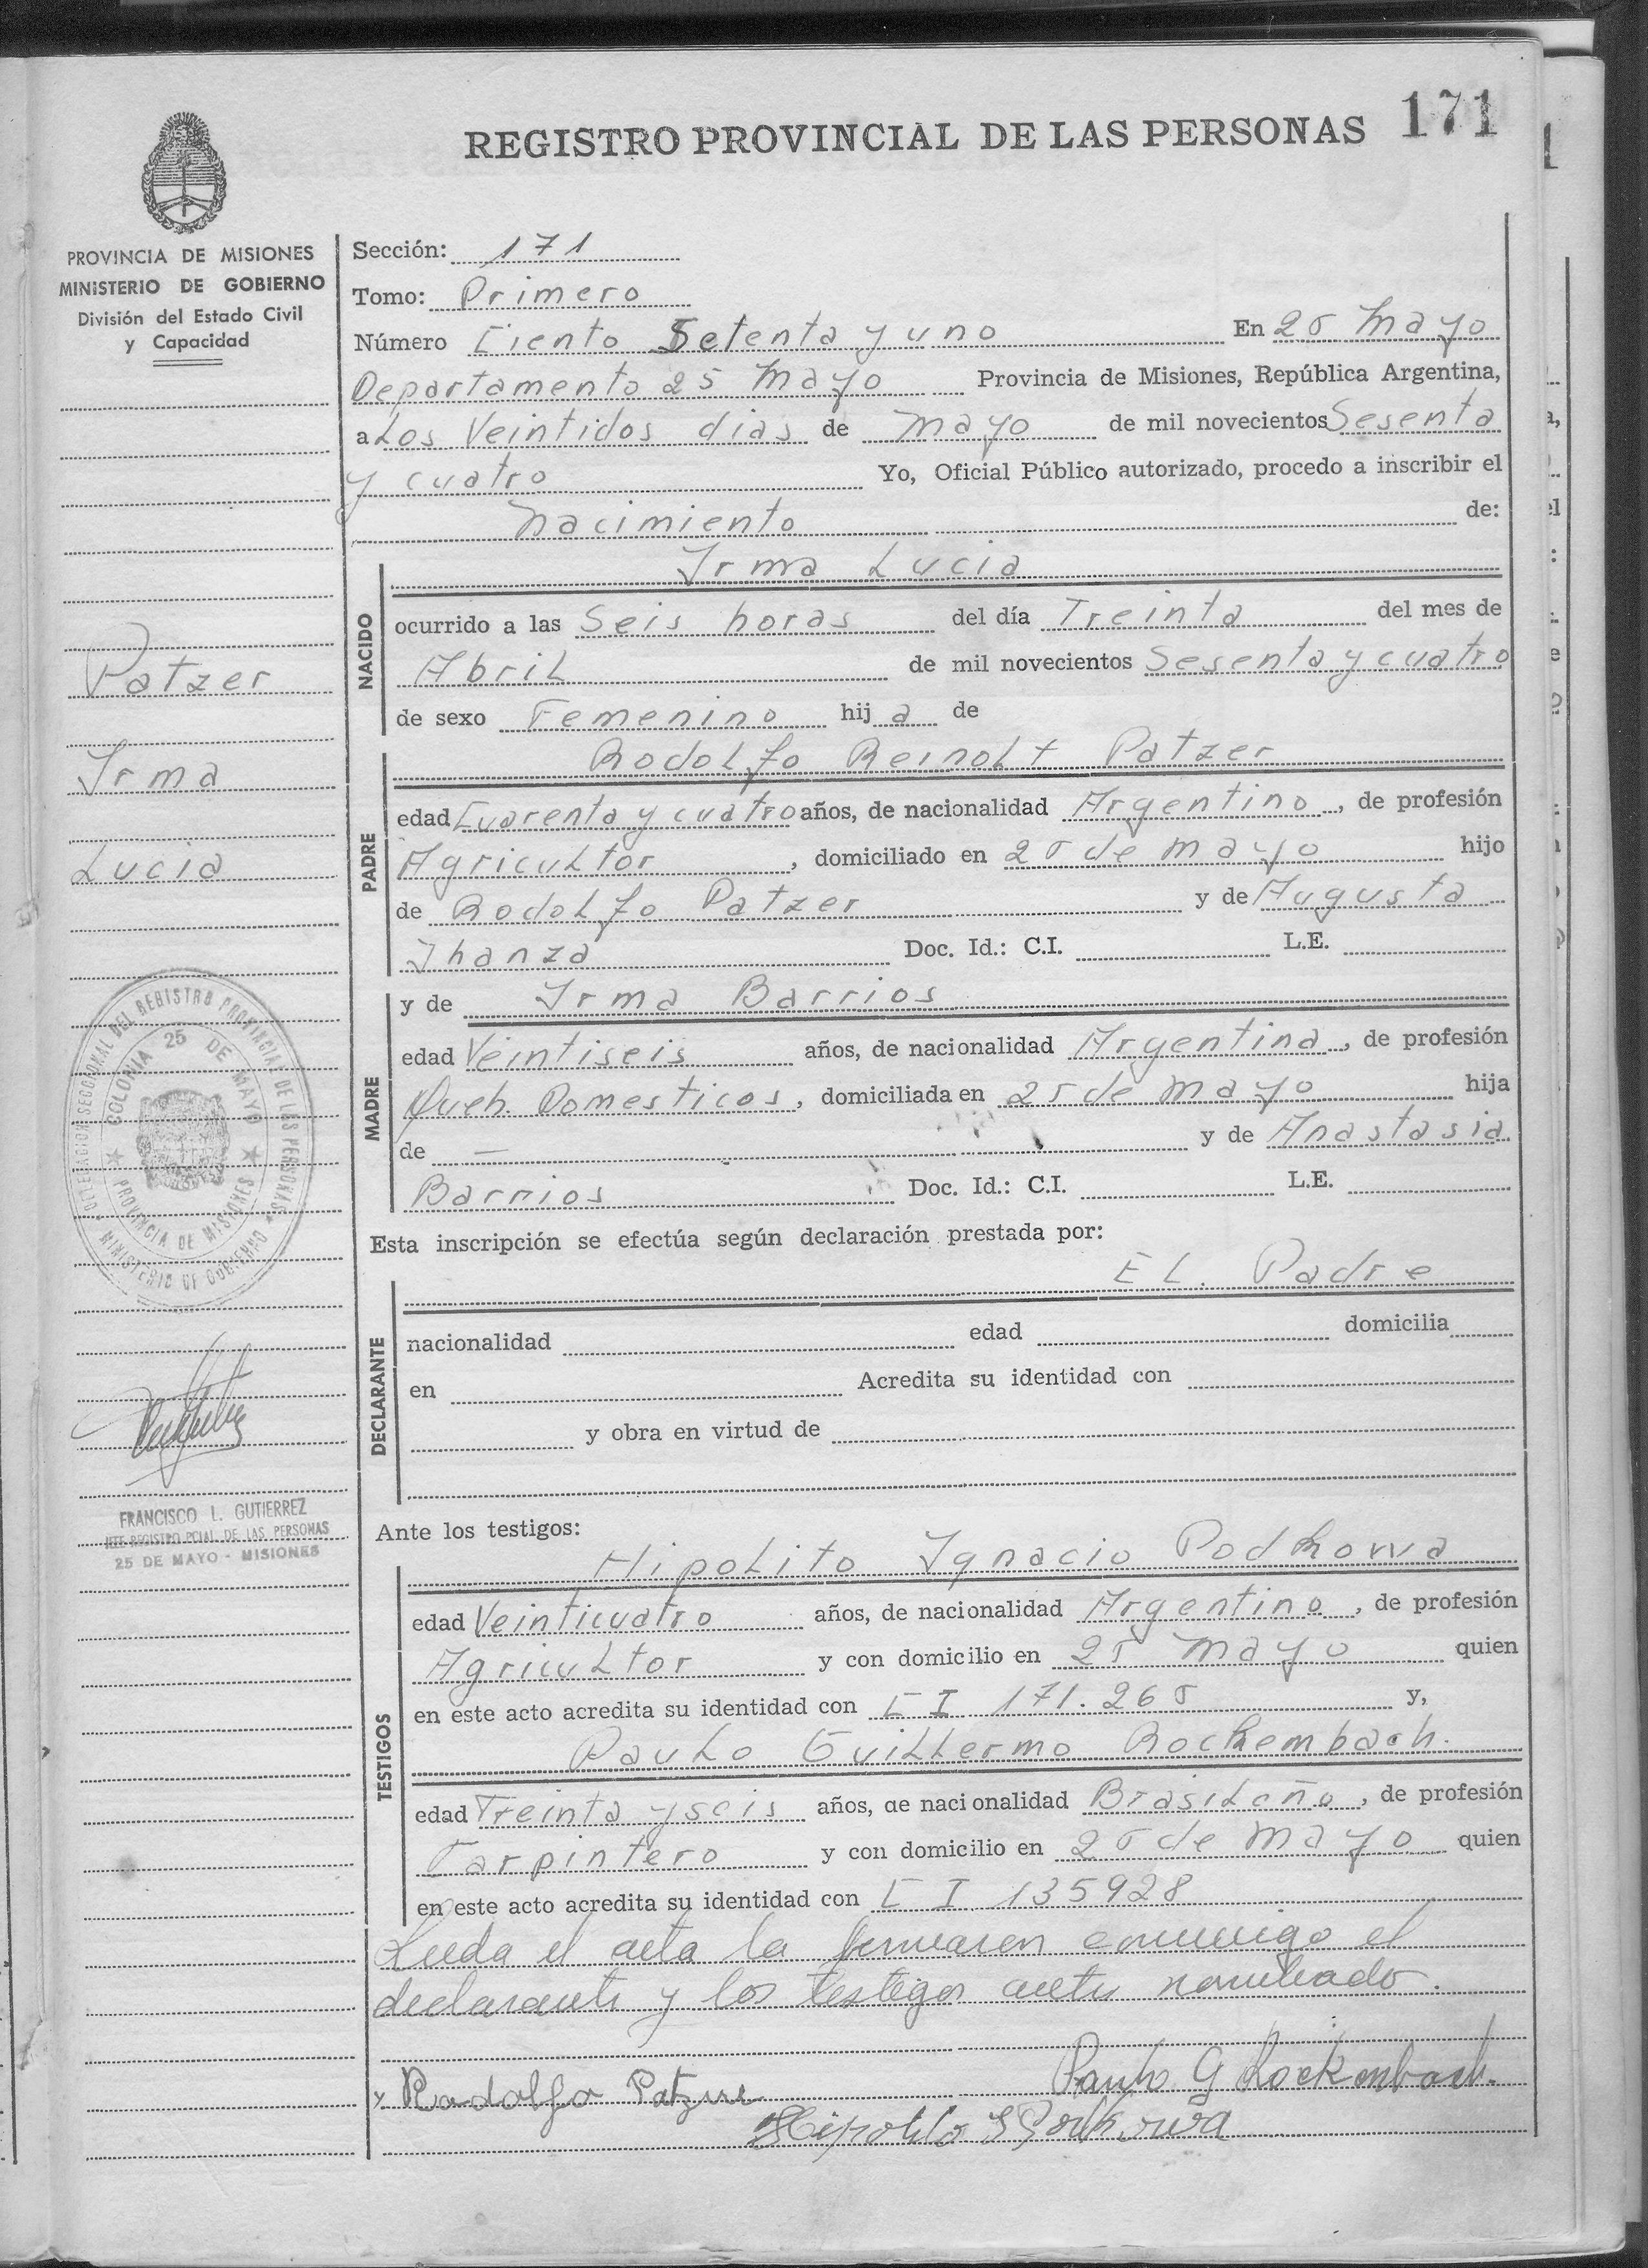 171
REGISTRO PROVINCIAL DE LAS PERSONAS
PROVINCIA DE MISIONES
MINISTERIO DE GOBIERNO
División del Estado Civil
y Capacidad
Patzer
Irma
Lucia
DELEGACION SECCIONAL DEL REGISTRO PROVINCIAL DE LAS PERSONAS
MINISTERIO DE GOBIERNO
COLONIA 25 DE MAYO
PROVINCIA DE MISIONES
FRANCISCO L. GUTIERREZ
JEFE REGISTRO PCIAL. DE LAS PERSONAS
25 DE MAYO - MISIONES
Sección: 171
Tomo: Primero
Número Ciento Setenta y uno En 25 Mayo
Departamento 25 Mayo Provincia de Misiones, República Argentina,
a Los Veintidos dias de Mayo de mil novecientos Sesenta
y cuatro Yo, Oficial Público autorizado, procedo a inscribir el
Nacimiento de:
NACIDO
Irma Lucia
ocurrido a las Seis horas del día Treinta del mes de
Abril de mil novecientos Sesenta y cuatro
de sexo Femenino hija de
PADRE
Rodolfo Reinolt Patzer
edad Cuarenta y cuatro años, de nacionalidad Argentino, de profesión
Agricultor, domiciliado en 25 de Mayo hijo
de Rodolfo Patzer y de Augusta
Ihanza Doc. Id.: C.I. L.E.
MADRE
y de Irma Barrios
edad Veintiseis años, de nacionalidad Argentina, de profesión
Queh. Domesticos, domiciliada en 25 de Mayo hija
de — y de Anastasia
Barrios Doc. Id.: C.I. L.E.
Esta inscripción se efectúa según declaración prestada por:
El. Padre
DECLARANTE
nacionalidad edad domicilia
en Acredita su identidad con
y obra en virtud de
Ante los testigos:
TESTIGOS
Hipolito Ignacio Podkowa
edad Veinticuatro años, de nacionalidad Argentino, de profesión
Agricultor y con domicilio en 25 Mayo quien
en este acto acredita su identidad con C I 171.265 y,
Paulo Guillermo Rockembach.
edad Treinta y seis años, de nacionalidad Brasileño, de profesión
Carpintero y con domicilio en 25 de Mayo quien
en este acto acredita su identidad con C I 135928
Leida el acta la firmaron conmigo el
declarante y los testigos nombrado.
Rodolfo Patzer
Paulo G Rockembach.
Hipolito I Podkowa